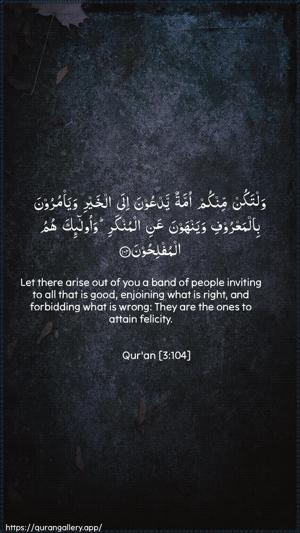 وَلْتَكُنْ مِّنْكُمْ اُمَّةٌ يَّدْعُوْنَ اِلَى الْخَيْرِ وَيَأْمُرُوْنَ
بِالْمَعْرُوْفِ وَيَنْهَوْنَ عَنِ الْمُنْكَرِ ۗ وَاُولٰۤىِٕكَ هُمُ
الْمُفْلِحُوْنَ ۝١٠٤
Let there arise out of you a band of people inviting
to all that is good, enjoining what is right, and
forbidding what is wrong: They are the ones to
attain felicity.
Qur'an [3:104]
https://qurangallery.app/